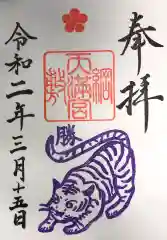 奉拝
綱敷
天満宮
勝
令和二年三月十五日